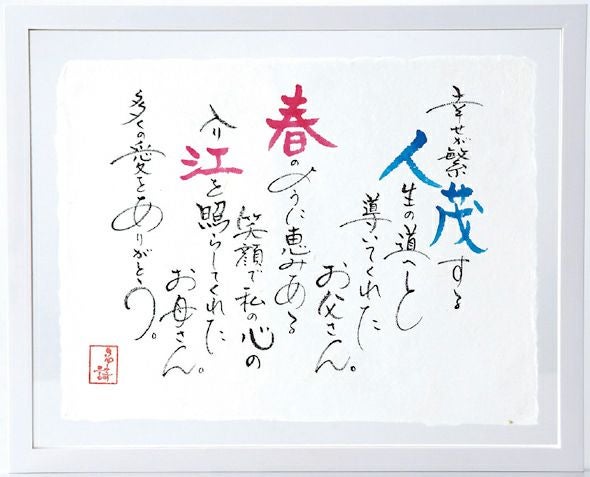 幸せが繁茂する
人生の道へと
導いてくれた
お父さん。
春のように恵みある
笑顔で私の心の
入り江を照らしてくれた
お母さん。
多くの愛をありがとう。